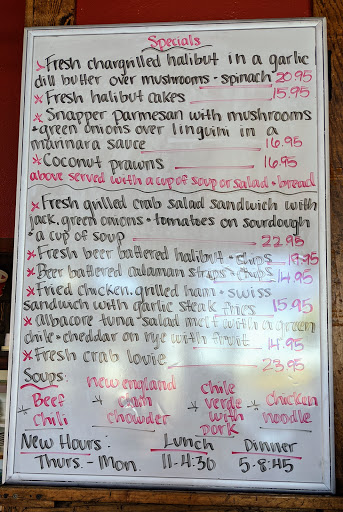 Specials
* Fresh chargrilled halibut in a garlic
dill butter over mushrooms • spinach 20.95
* Fresh halibut cakes 15.95
* Snapper parmesan with mushrooms
• green onions over linguini in a
marinara sauce 16.95
* Coconut prawns 16.95
above served with a cup of soup or salad • bread
* Fresh grilled crab salad sandwich with
jack, green onions • tomatoes on sourdough
• a cup of soup 22.95
* Fresh beer battered halibut • chips 17.95
* Beer battered calamari strips • chips 14.95
* Fried chicken, grilled ham • swiss
sandwich with garlic steak fries 15.95
* albacore tuna salad melt with a green
chile • cheddar on rye with fruit 14.95
* Fresh crab louie 23.95
Soups:
Beef
Chili
* new england
clam
chowder
* chile
verde
with
pork
* chicken
noodle
New Hours: Lunch Dinner
Thurs. - Mon. 11-4:30 5-8:45